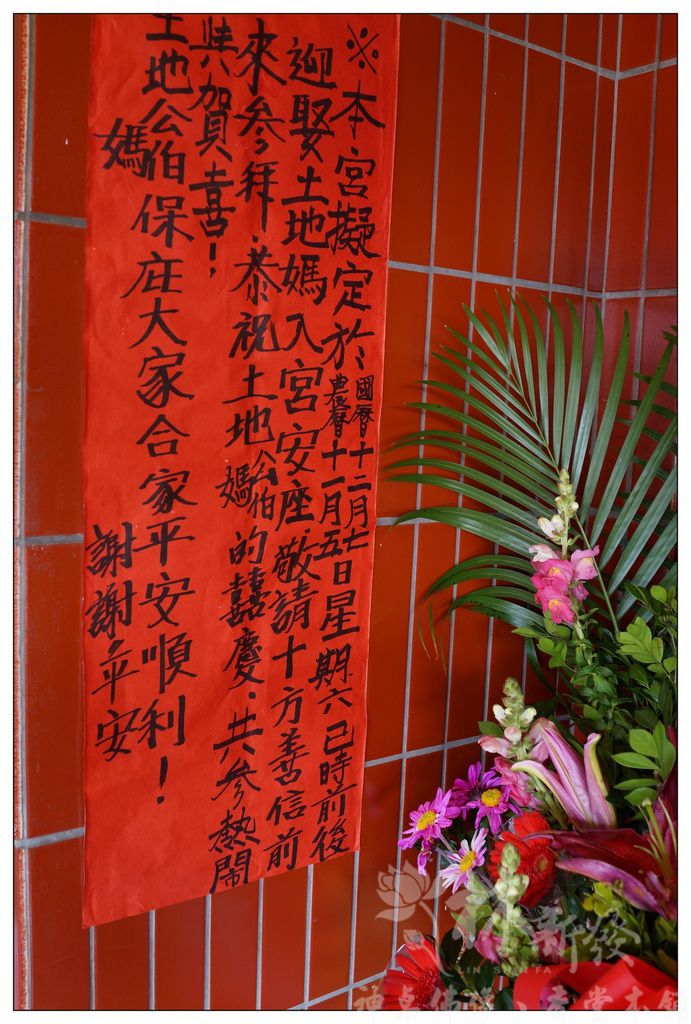 ※本宮擬定於國曆十二月七農曆十一月五日星期六巳時前後
迎娶土地媽入宮安座.敬請十方善信前
來參拜.恭祝土地公伯媽的囍慶.共參熱鬧
共賀喜!
土地公伯媽保庄大家合家平安順利!
謝謝,平安
林新發
LIN SHIN FA